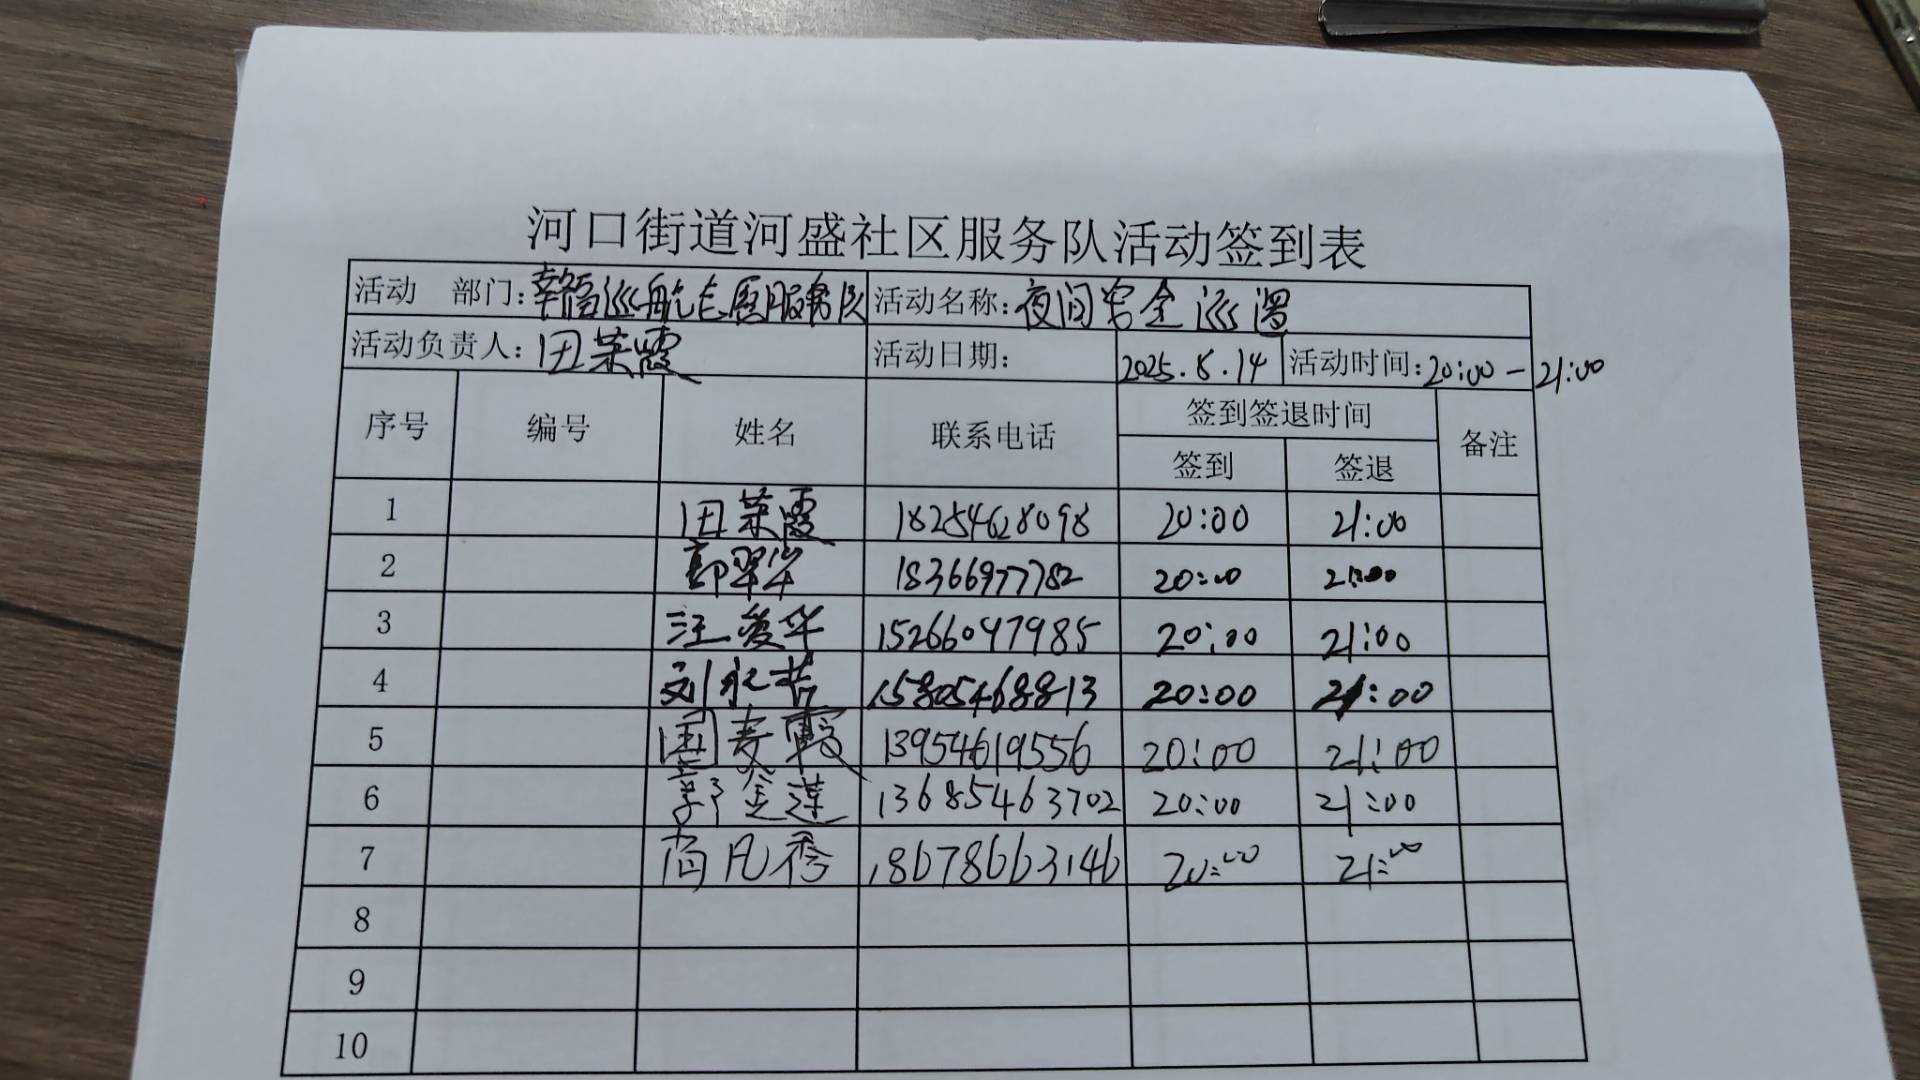 河口街道河盛社区服务队活动签到表
活动 部门：幸福巡航志愿服务队 活动名称：夜间安全巡逻
活动负责人：田荣霞 活动日期： 2025.8.14 活动时间：20:00-21:00
序号 编号 姓名 联系电话 签到签退时间 备注
签到 签退
1 田荣霞 18254628098 20:00 21:00
2 郭翠 18366977782 20:00 21:00
3 汪爱华 15266047985 20:00 21:00
4 刘永 15805468813 20:00 21:00
5 国 霞 13954619556 20:00 21:00
6 郭金莲 13685463702 20:00 21:00
7 尚凡秀 18678663146 20:00 21:00
8
9
10